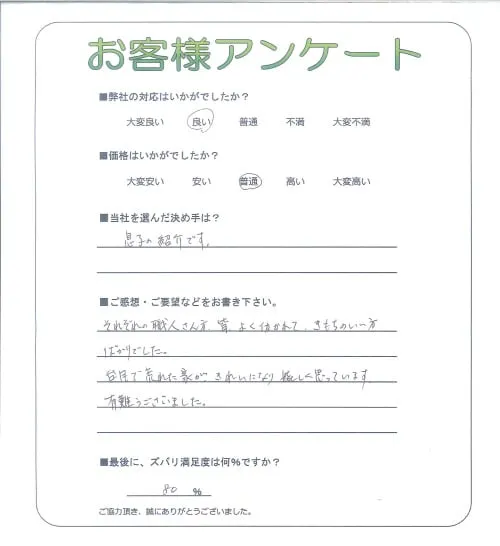 お客様アンケート
■弊社の対応はいかがでしたか？
大変良い 良い 普通 不満 大変不満
■価格はいかがでしたか？
大変安い 安い 普通 高い 大変高い
■当社を選んだ決め手は？
息子の紹介です。
■ご感想・ご要望などをお書き下さい。
それぞれの職人さん方、皆、よく仂かれて、きもちのいい方
ばかりでした。
台風で荒れた家が、きれいになり 嬉しく思っています。
有難うございました。
■最後に、ズバリ満足度は何％ですか？
80 ％
ご協力頂き、誠にありがとうございました。